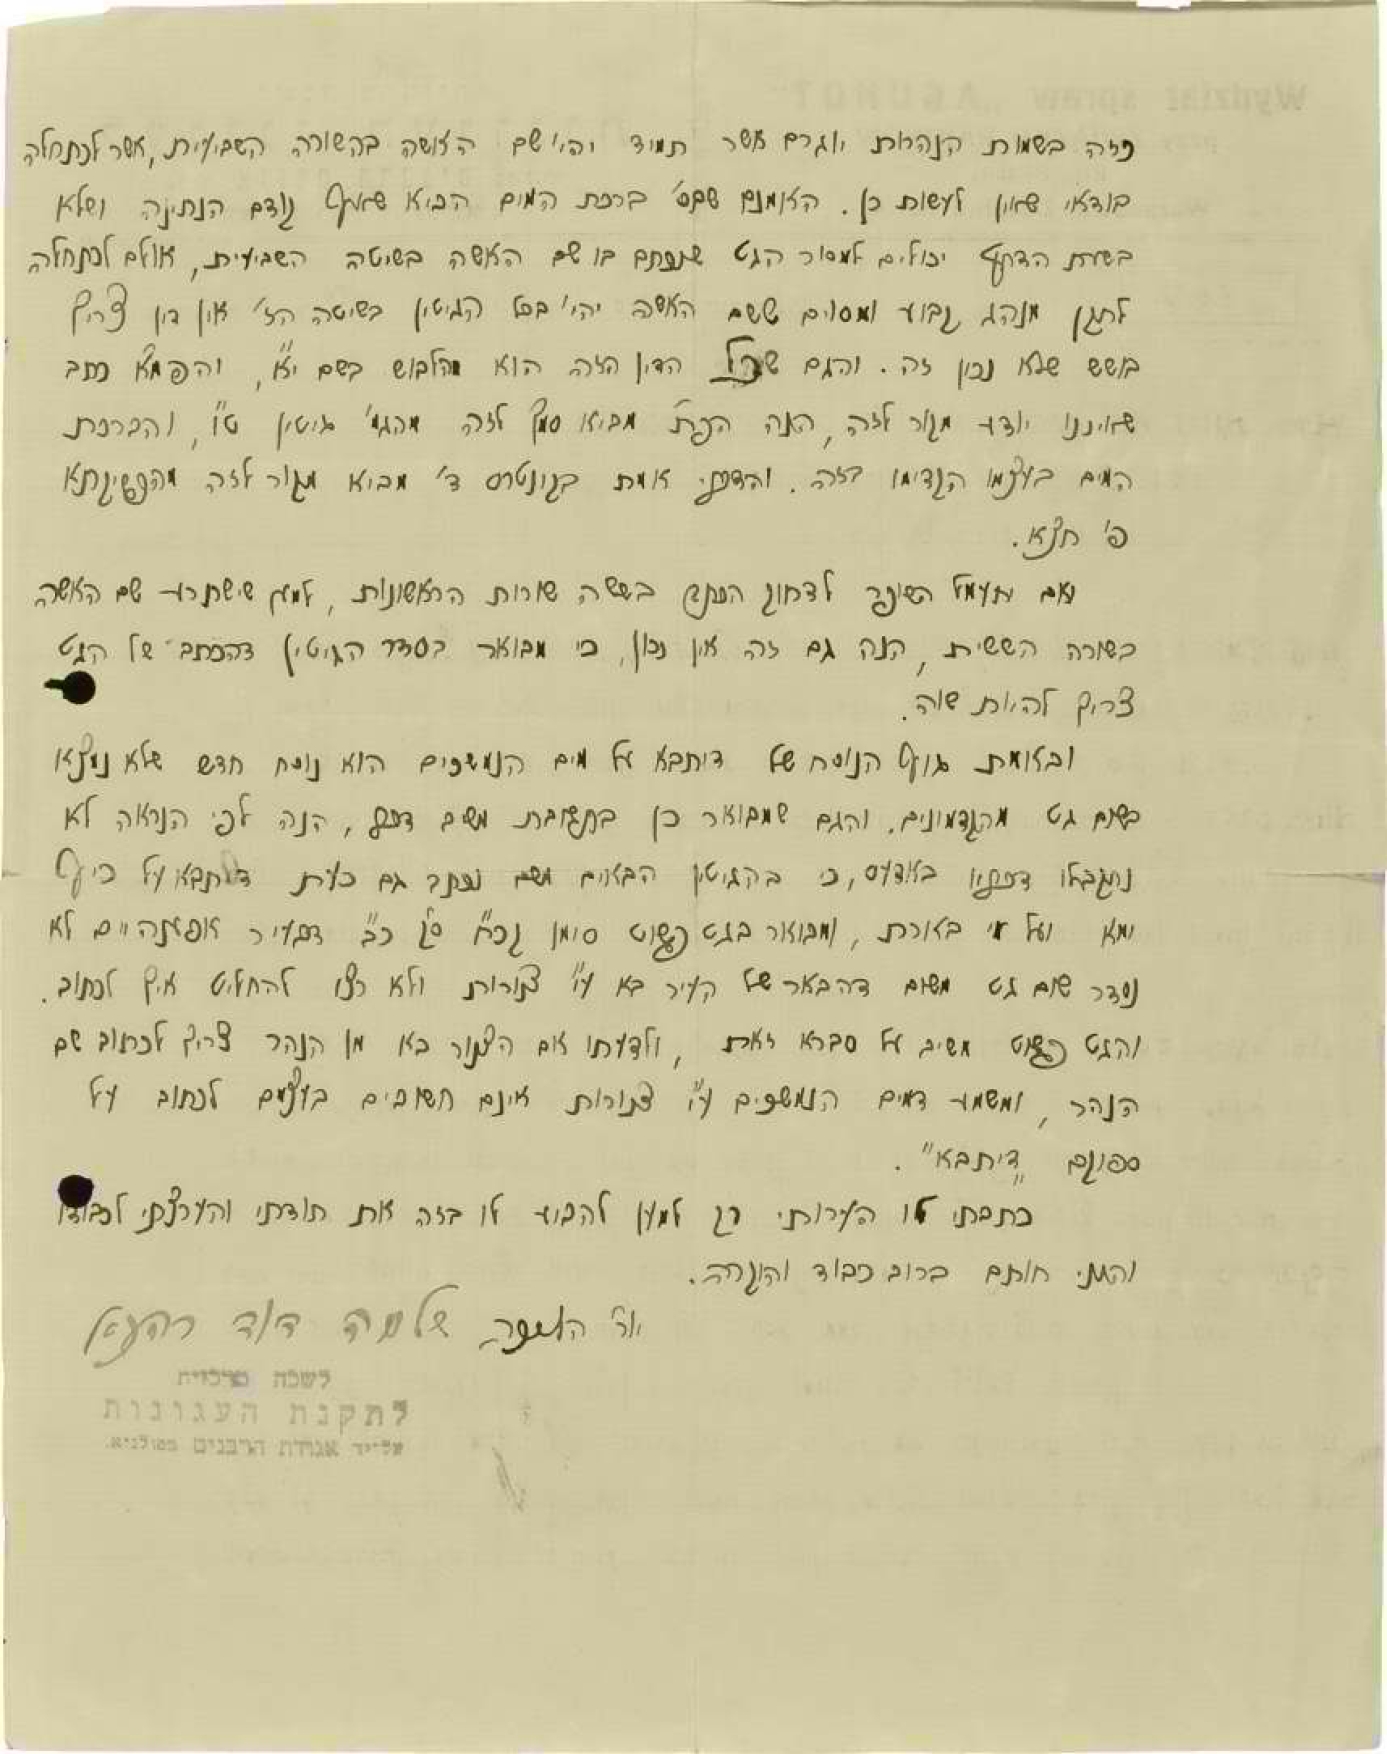 כזה בשמות הנהרות יוגרם אשר תמיד יהי' שם האשה בהשורה השביעית, אשר לכתחלה
בודאי שאין לעשות כן. האומנם שבס' ברכת המים הביא שאף קודם הנתינה ושלא
בשעת הדחק יכולים למסור הגט שנכתב בו שם האשה בשיטה השביעית, אולם לכתחלה
לתקן מנהג קבוע ומסוים ששם האשה יהי' בכל הגיטין בשיטה הז' אין דין צריך
בושש שלא נכון זה. והגם שכל הדין הזה הוא מהלבוש בשם י"א, והפמ"א כתב
שאיננו יודע מקור לזה, הנה הפ"ת מביא סמך לזה מהגמ' גיטין ט"ו, והברכת
המים בעצמו הקדימו בזה. והדברי אמת בקונטרס ד' מביא מקור לזה מהפסיקתא
פ' תצא.
ואם יתעמל הסופר לדחוק הכתב בששה שורות הראשונות, למען שישתרע שם האשה
בשורה הששית, הנה גם זה אין נכון, כי מבואר בסדר הגיטין דהכתב של הגט
צריך להיות שוה.
ובאמת גוף הנוסח של דיתבא על מים הנמשכים הוא נוסח חדש שלא נמצא
בשום גט מהקדמונים. והגם שמבואר כן בתשובת משיב דבר, הנה לפי הנראה לא
נתקבלו דבריו באדעס, כי בהגיטין הבאים משם נכתב גם כעת דיתבא על כיף
ימא ועל מי בארות, ומבואר בגט פשוט סימן קכ"ח ס"ק כ"ב דבעיר אפאנהיים לא
נסדר שום גט משום דהבאר של העיר בא ע"י צנורות ולא רצו להחליט איך לכתוב.
והגט פשוט משיב על סברא זאת, ולדעתו אם הצנור בא מן הנהר צריך לכתוב שם
הנהר, ומשמע דמים הנמשכים ע"י צנורות אינם חשובים בעצמם לכתוב על
סמוכם "דיתבא".
כתבתי לו הערותי רק למען להביע לו בזה את תודתי והערצתי לכבודו
והנני חותם ברוב כבוד והוקרה.
יו"ר הועדה שלמה דוד כהנא
לשכה מרכזית
לתקנת העגונות
על־יד אגודת הרבנים בפולניא.